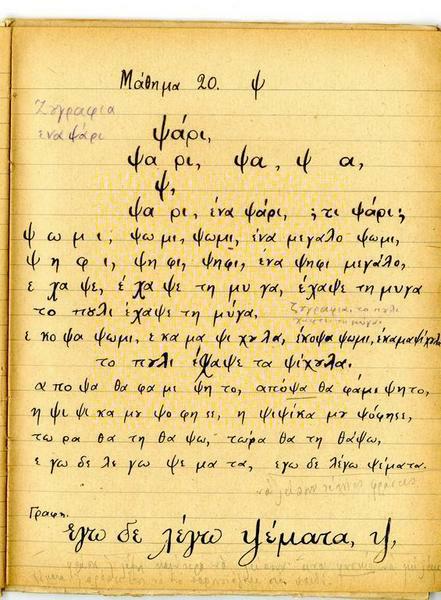 Μάθημα 20. ψ
Ζωγραφια
ενα ψάρι
ψάρι,
ψα ρι, ψα, ψ α,
ψ,
ψα ρι, ένα ψάρι, ; τι ψάρι;
ψ ω μ ι, ψω μι, ψωμι, ένα μεγαλο ψωμι,
ψ η φ ι, ψη φι, ψηφι, ένα ψηφι μεγάλο,
ε χα ψε, έ χα ψε τη μυ γα, έχαψε τη μυγα
το πυλι έχαψε τη μύγα,
ζωγραφια, το πυλι
ε κο ψα ψωμι, ε κα μα ψι χυλα, έκοψα ψωμι, έκαμα ψίχυλα
το πυλι έχαψε τα ψίχυλα,
α πο ψα θα φα μι ψη το, απόψα θά φάμε ψητο,
η ψι ψι κα μυ ψο φη σε, η ψιψίκα μυ ψόφησε,
τω ρα θα τη θα ψω, τώρα θα τη θάψω,
ε γω δε λε γω ψε μα τα, εγω δε λέγω ψέματα.
φράσεις
Γραφη.
εγω δε λέγω ψέματα, ψ,